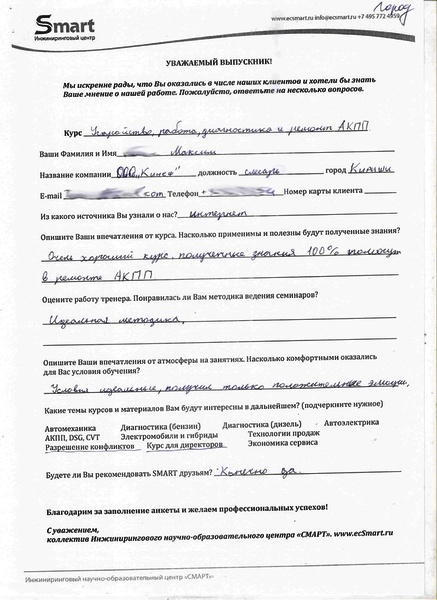 Город
Smart
Инжиниринговый центр
www.ecsmart.ru info@ecsmart.ru +7 495 772 4959
УВАЖАЕМЫЙ ВЫПУСКНИК!
Мы искренне рады, что Вы оказались в числе наших клиентов и хотели бы знать
Ваше мнение о нашей работе. Пожалуйста, ответьте на несколько вопросов.
Курс Устройство, работа, диагностика и ремонт АКПП
Ваши Фамилия и Имя Максим
Название компании ООО "Кинеф" должность слесарь город Кириши
E-mail com Телефон + Номер карты клиента
Из какого источника Вы узнали о нас? интернет
Опишите Ваши впечатления от курса. Насколько применимы и полезны будут полученные знания?
Очень хороший курс, полученные знания 100% помогут
в ремонте АКПП
Оцените работу тренера. Понравилась ли Вам методика ведения семинаров?
Идеальная методика,
Опишите Ваши впечатления от атмосферы на занятиях. Насколько комфортными оказались
для Вас условия обучения?
Условия идеальные, получил только положительные эмоции,
Какие темы курсов и материалов Вам будут интересны в дальнейшем? (подчеркните нужное)
Автомеханика Диагностика (бензин) Диагностика (дизель) Автоэлектрика
АКПП, DSG, CVT Электромобили и гибриды Технологии продаж
Разрешение конфликтов Курс для директоров Экономика сервиса
Будете ли Вы рекомендовать SMART друзьям? Конечно да
Благодарим за заполнение анкеты и желаем профессиональных успехов!
С уважением,
коллектив Инжинирингового научно-образовательного центра «СМАРТ». www.ecSmart.ru
Инжиниринговый научно-образовательный центр «СМАРТ»